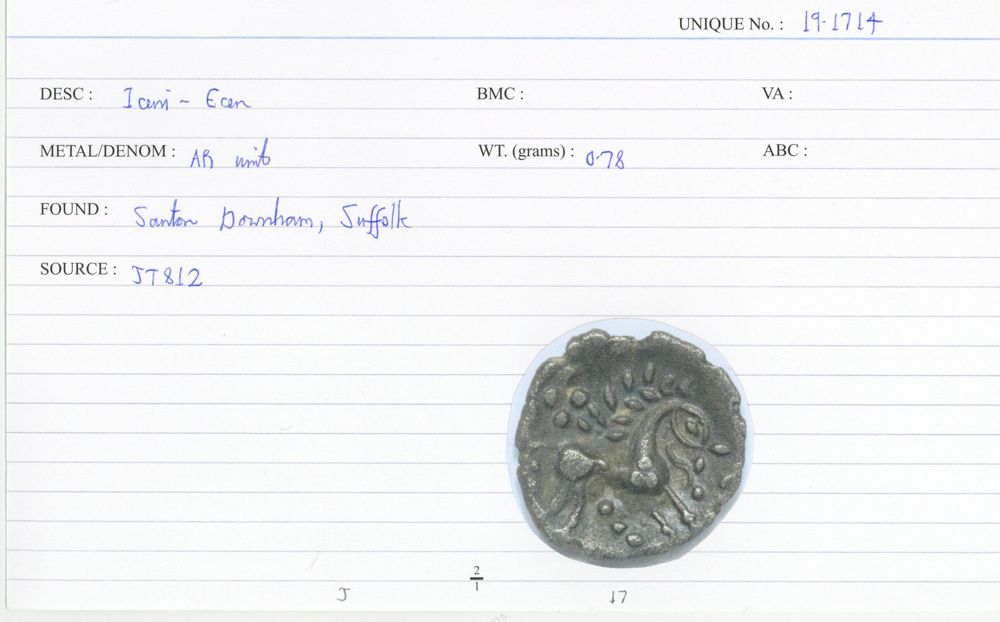 UNIQUE No. : 19.1714
DESC : Iceni - Ecen BMC : VA :
METAL/DENOM : AR unit WT. (grams) : 0.78 ABC :
FOUND : Santon Downham, Suffolk
SOURCE : JT812
2
1
J 17